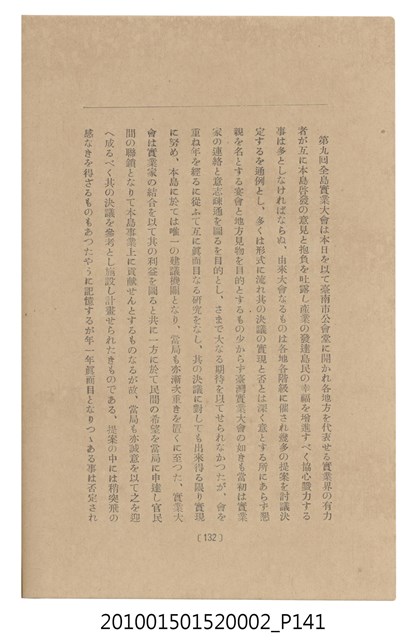 第九回全島實業大會は本日を以て臺南市公會堂に開かれ各地方を代表せる實業界の有力
者が互に本島啓發の意見と抱負を吐露し産業の發達島民の幸福を增進すべく協心戮力する
事は多としなければならぬ、由來大會なるものは各地各階級に催され幾多の提案を討議決
定するを通例とし、多くは形式に流れ其の決議の實現と否とは深く意とする所にあらず懇
親を名とする宴會と地方見物を目的とするもの少からず臺灣實業大會の如きも當初は實業
家の連絡と意志疏通を圖るを目的とし、さまで大なる期待を以てせられなかつたが、會を
重ね年を經るに從ふて互に眞面目なる研究をなし、其の決議に對しても出來得る限り實現
に努め、本島に於ては唯一の建議機關となり、當局も亦漸次重きを置くに至つた、實業大
會は實業家の結合を以て其の利益を圖ると共に一方に於て民間の希望を當局に申達し官民
間の聯鎖となりて本島事業上に貢獻せんとするものなるが故、當局も亦誠意を以て之を迎
へ成るべく其の決議を參考とし施設し計畫せられたきものである、提案の中には稍突飛の
感なきを得ざるものもあつたやうに記憶するが年一年眞面目となりつゝある事は否定され
( 132 )
201001501520002_P141